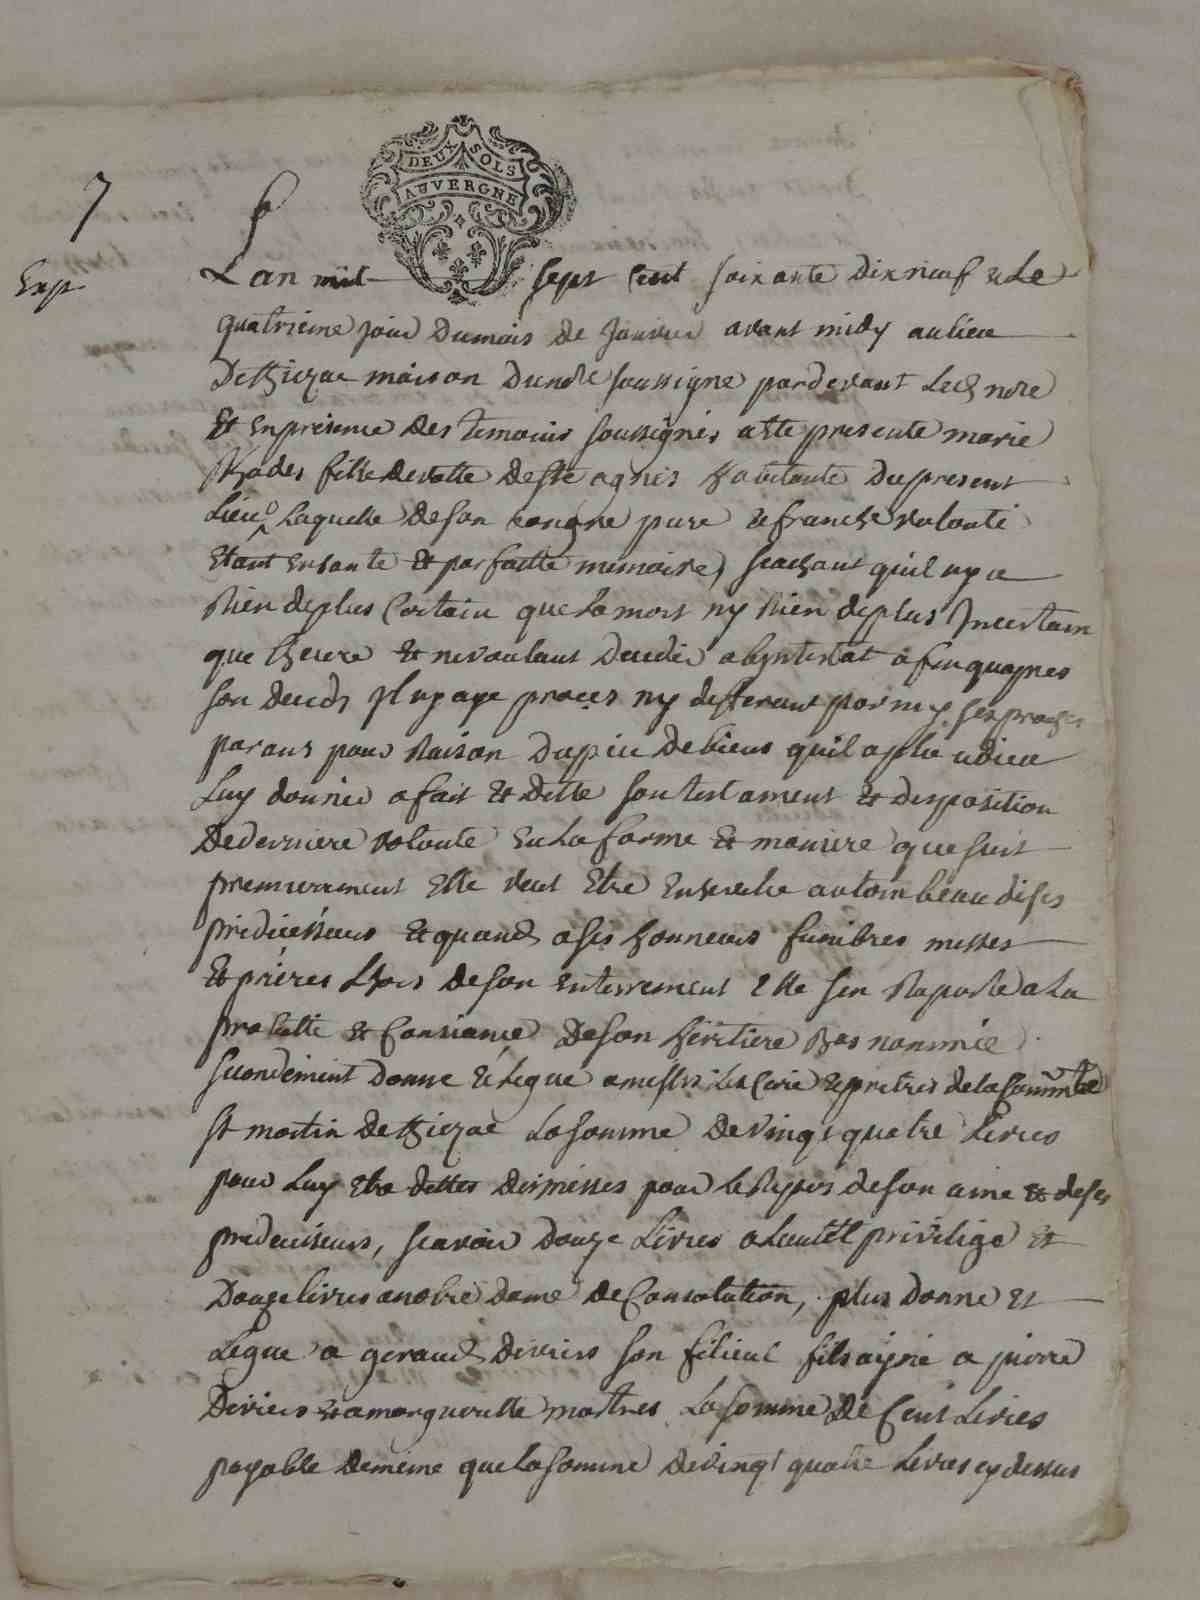 7
DEUX SOLS
AUVERGNE
Exp
Lan mil sept cent soixante dix neuf & Le
quatrieme jour dumois de Janvier avant midy aulieu
DeThiezac maison dundt soussigne pardevant Led nore
Et En presence des temoins soussignés a Ete presente marie
Rhodes fille devotte deste agnes habitante dupresent
Lieu Laquelle deson pure & franche volonté
Etant En sante & parfaitte memoire, scachant quil nya
Rien deplus Certain que La mort ny Rien deplus Incertain
que lheure Et nevoulant deceder abintestat afin quapres
son deceds Il nyaye proces ny differant parmy ses proches
parans pour Raison dupeu debiens quil aplu a dieu
Luy donner a fait & ditte son testament & disposition
Dederniere volonte En La forme & maniere que suit
premierement Elle veut Etre Ensevelie autombeau de ses
predecesseurs Et quand a ses honneurs funebres messes
Et prieres Lhors deson enterrement Elle sen Raporte a La
probitte & Consiance deson heritiere bas nommée
secondement donne & Legue a messrs Les Curé & pretres de la Commté
st martin deThiezac La somme devingt quatre Livres
pour Luy Etre dittes des messes pour Le Repos deson ame & de ses
predecesseurs, scavoir douze Livres a Lautel privilige Et
Douze livres a notre dame de Consolation, plus donne Et
Legue a geraud deviers son filieul fils ayné a pierre
Deviers & a marguerite martres La somme de Cent Livres
payable de meme que La somme devingt quatre Livres cy dessus